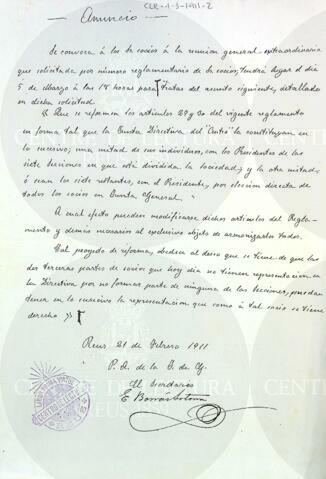 CLR-1-3-1911-2
Anuncio
Se convoca á los Sres socios á la reunion general extraordinaria
que solicitada por número reglamentario de Sres socios, tendrá lugar el dia
5 de Marzo á las 15 horas para tratar del asunto siguiente, detallados
en dicha solicitud.
« Que se reformen los articulos 29 y 30 del vigente reglamento
en forma tal que la Junta Directiva del "Centro" la constituyan en
lo sucesivo; una mitad de sus individuos, con los Presidentes de las
siete Secciones en que está dividida la sociedad, y la otra mitad,
ó sean los siete restantes, con el Presidente, por elección directa de
todos los socios en Junta General. »
A cual efecto pueden modificarse dichos articulos del Regla-
mento y demás necesarios al exclusivo objeto de armonizarlos todos.
Tal proyecto de reforma, obedece al deseo que se tiene de que las
dos terceras partes de socios que hoy dia no tienen representacion en
la Directiva por no formar parte de ninguna de las Secciones, puedan
tener en lo sucesivo la representacion que como á tal socio se tiene
derecho »
Reus, 21 de Febrero 1911
P. A. de la J. de G.
El Secretario
E Borrás
CENTRE DE LECTURA
REUS